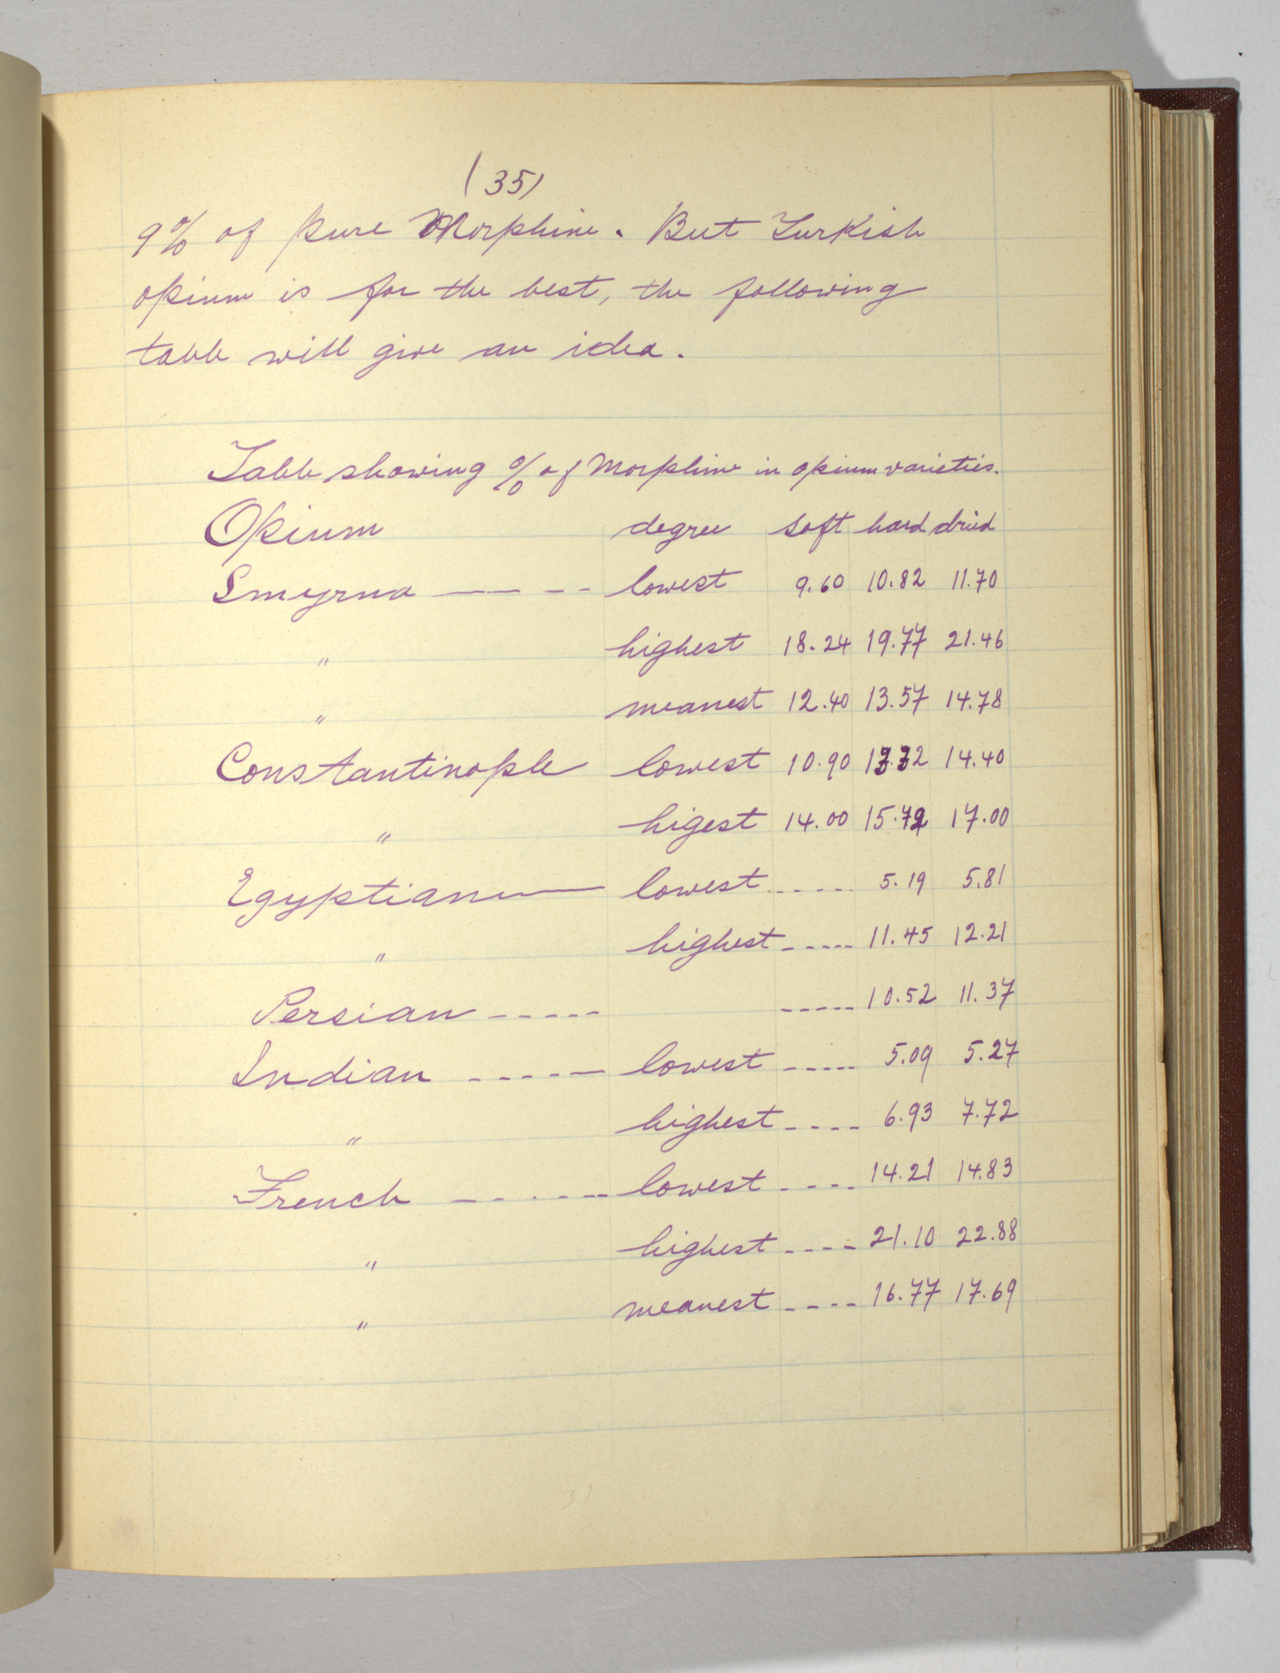 (35)
9% of pure Morphine. But Turkish
opium is far the best, the following
table will give an idea.
Table showing % of Morphine in opium varieties.
Opium degree soft hard dried
Smyrna — — - - lowest 9.60 10.82 11.70
" highest 18.24 19.77 21.46
" meanest 12.40 13.57 14.78
Constantinople lowest 10.90 13.32 14.40
" higest 14.00 15.72 17.00
Egyptian — lowest ..... 5.19 5.81
" highest ----- 11.45 12.21
Persian ----- ----- 10.52 11.37
Indian ----- lowest ----- 5.09 5.27
" highest ---- 6.93 7.72
French ------ lowest ---- 14.21 14.83
" highest ---- 21.10 22.88
" meanest ---- 16.77 17.69
31